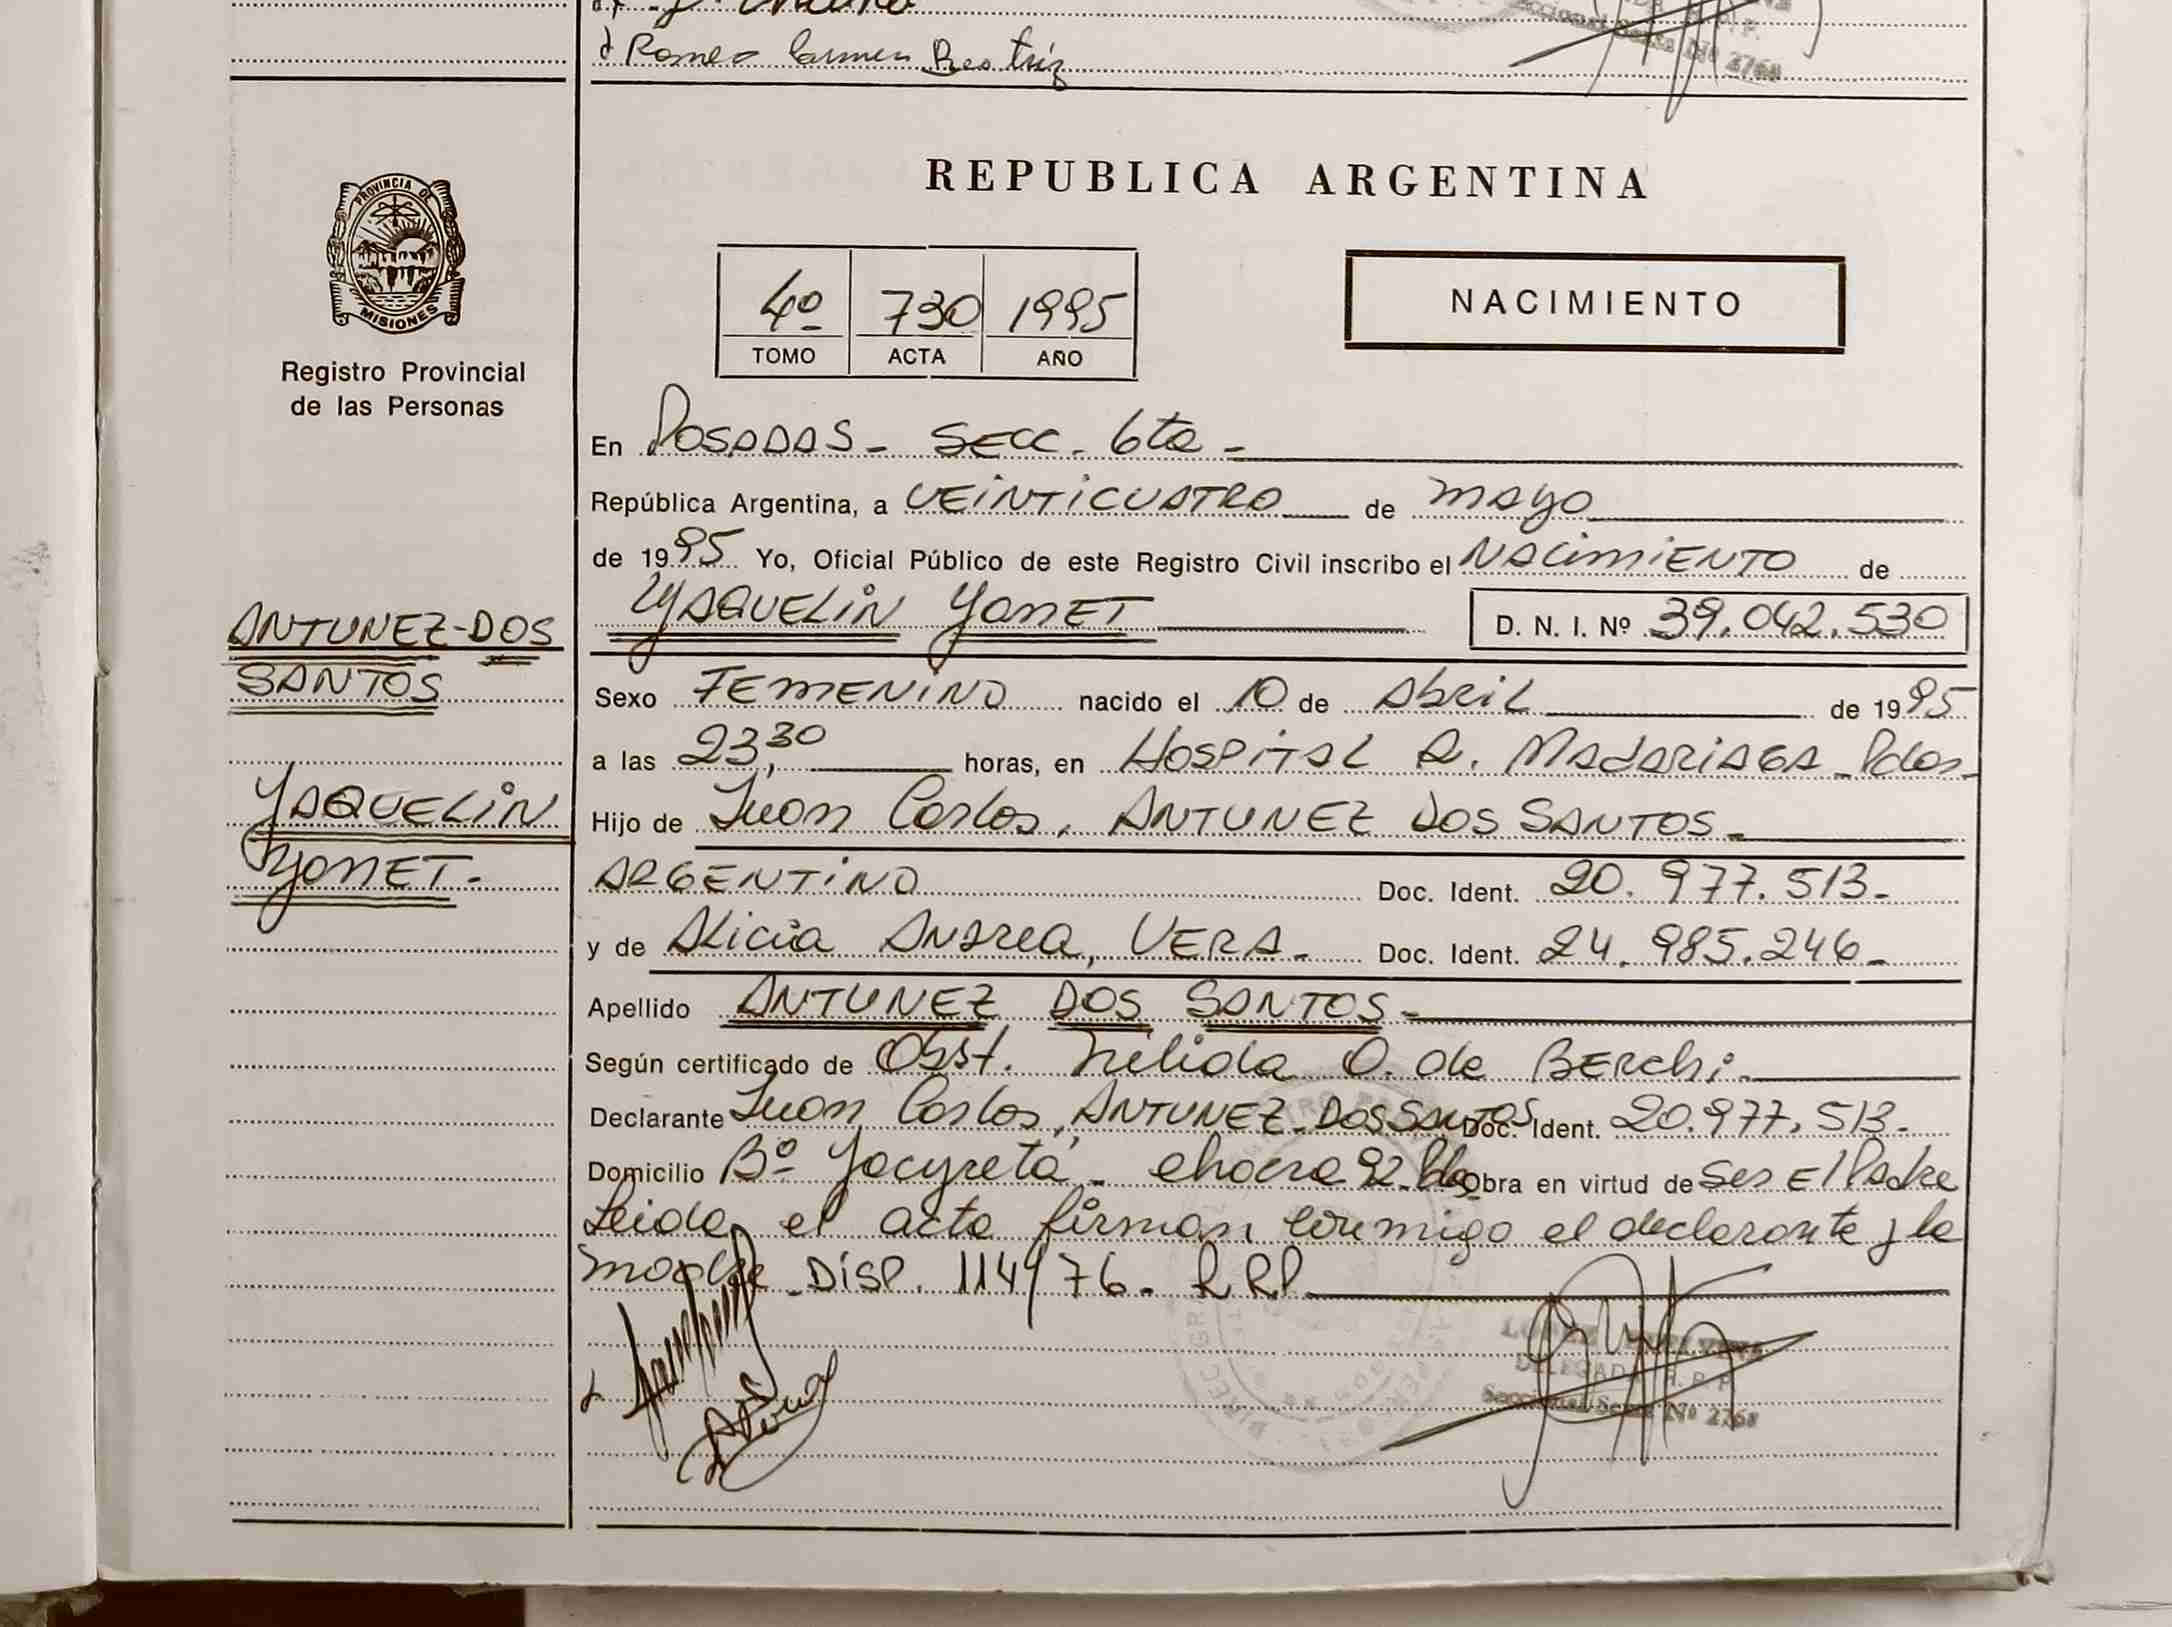 Romeo Carmen Beatriz
Seccional Sexta Nº 2768
REPUBLICA ARGENTINA
PROVINCIA DE
MISIONES
Registro Provincial
de las Personas
4º 730 1995
TOMO ACTA AÑO
NACIMIENTO
En POSADAS - SECC. 6ta -
República Argentina, a VEINTICUATRO de mayo
de 1995 Yo, Oficial Público de este Registro Civil inscribo el NACIMIENTO de
YAQUELIN YANET D. N. I. Nº 39.042.530
ANTUNEZ-DOS
SANTOS
YAQUELIN
YANET.
Sexo FEMENINO nacido el 10 de Abril de 1995
a las 23,30 horas, en HOSPITAL R. MADARIAGA - Pdas-
Hijo de Juan Carlos, ANTUNEZ DOS SANTOS-
ARGENTINO Doc. Ident. 20.977.513-
y de Alicia Andrea, VERA- Doc. Ident. 24.985.246-
Apellido ANTUNEZ DOS SANTOS-
Según certificado de Obst. Nelida O. de BERCHI-
Declarante Juan Carlos, ANTUNEZ-DOS SANTOS Doc. Ident. 20.977.513-
Domicilio Bº Yacyretá - chacra 92- Obra en virtud de Ser El Padre
Leida el acta firman conmigo el declarante y la
madre - DISP. 114/76- RRP
DELEGADA R. P. P.
Seccional Sexta Nº 2768